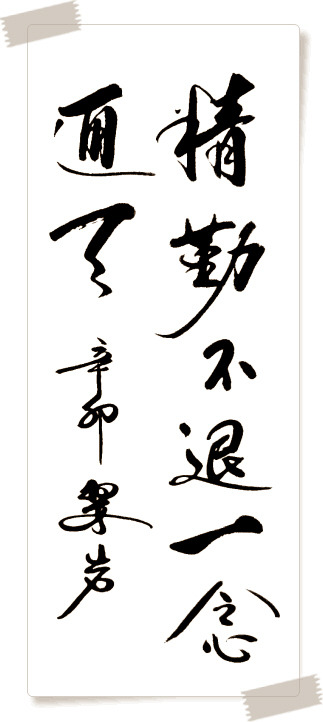 精勤不退一念
通天 辛卯 岩